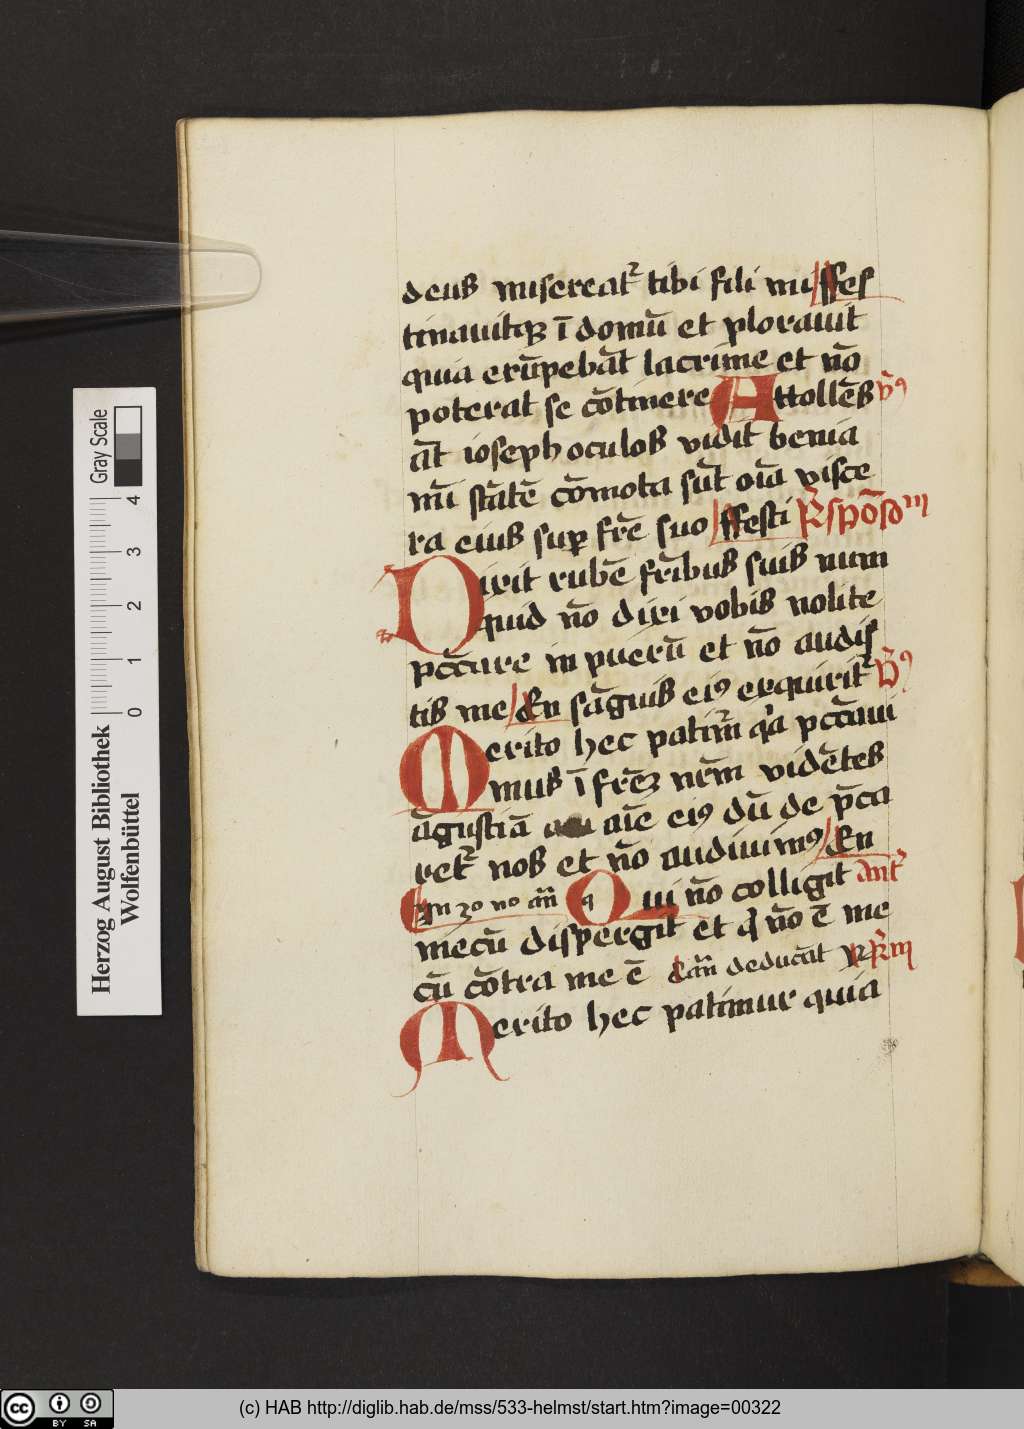 deus misereatᷣ tibi fili mi ffes
tinauitqꝫ ī domū et plorauit
quia erūpebāt lacrime et nō
poterat se cōtinere Attollēs v̄ꝰ
āt ioseph oculos vidit benia
mī stātē cōmota sūt oīa visce
ra eius suꝑ frē̄ suo ffesti Rn̄spōsoriū
Dixit rubē fr̄ibus suis num
quid nō dixi vobis nolite
pccare in puerū et nō audis
tis me En sāguis eiꝰ exquiritᷣ v̄ꝰ
Merito hec patim̄ qͥa pccaui
mus ī frēꝫ nr̄m vidētes
āgustiā aīe eiꝰ dū de p̄ca
retᷣ nos et nō audiuimꝰ En
Qui nō colligit ant̄
mecū dispergit et qͥ nō ē me
cū cōtra me ē deducāt
Merito hec patimur quia
Herzog August Bibliothek
Wolfenbüttel
0 1 2 3 4
Gray Scale
BY SA
(c) HAB http://diglib.hab.de/mss/533-helmst/start.htm?image=00322